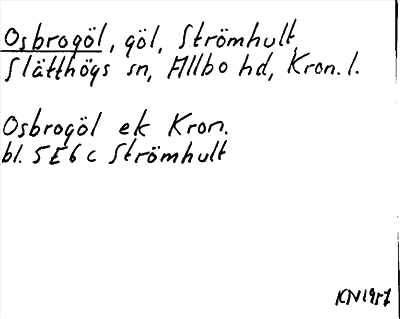 Osbrogöl, göl, Strömhult
Slätthögs sn, Allbo hd, Kron. l.
Osbrogöl ek Kron.
bl. 5E6c Strömhult